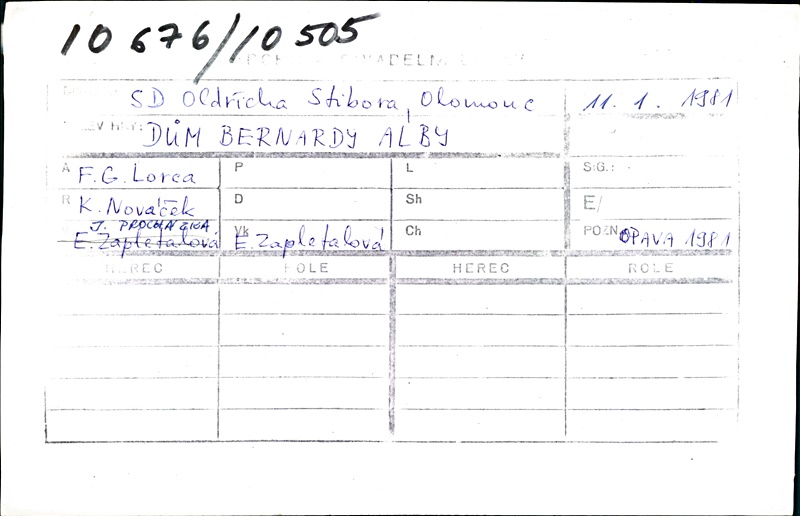 10 676/10 505
SD Oldřicha Stibora, Olomouc 11. 1. 1981
DŮM BERNARDY ALBY
A F. G. Lorca P L SIG.:
R K. Nováček D Sh E/
J. PROCHÁZKA
E. Zapletalová Vk E. Zapletalová Ch POZN. OPAVA 1981
HEREC ROLE HEREC ROLE